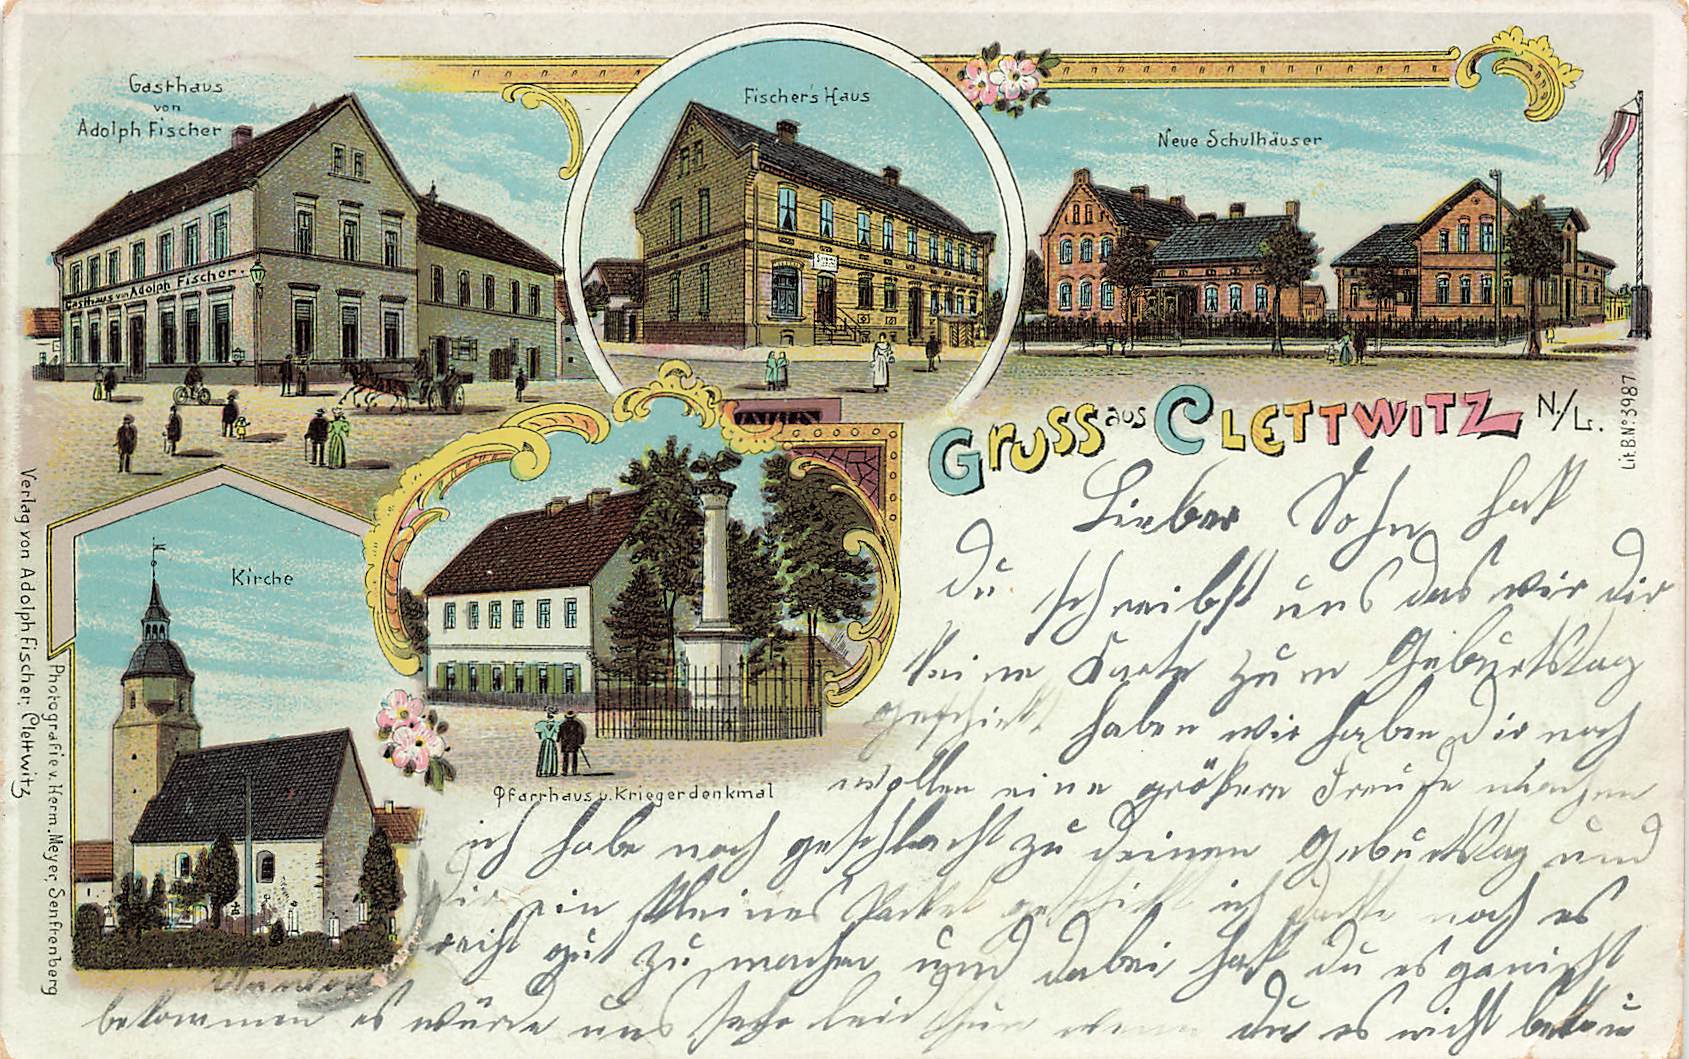 Gasthaus
von
Adolph Fischer
Gasthaus von Adolph Fischer.
Fischer's Haus
Neue Schulhäuser
Gruss aus Clettwitz N./L.
Lit. B. No. 3987
Kirche
Pfarrhaus u. Kriegerdenkmal
Verlag von Adolph Fischer, Clettwitz
Photografie v. Herm. Meyer, Senftenberg
Lieber Sohn hast
Du schreibst uns das wir dir
keine Karte zum Geburtstag
geschickt haben wir haben Dir noch
wollen eine größere Freude machen
ich habe noch geschlacht zu deinen Geburtstag und
dir ein kleines Packet geschickt ich dachte noch es
recht gut zu machen und dabei hast du es garnicht
bekommen es würde uns sehr leid thun wenn du es nicht